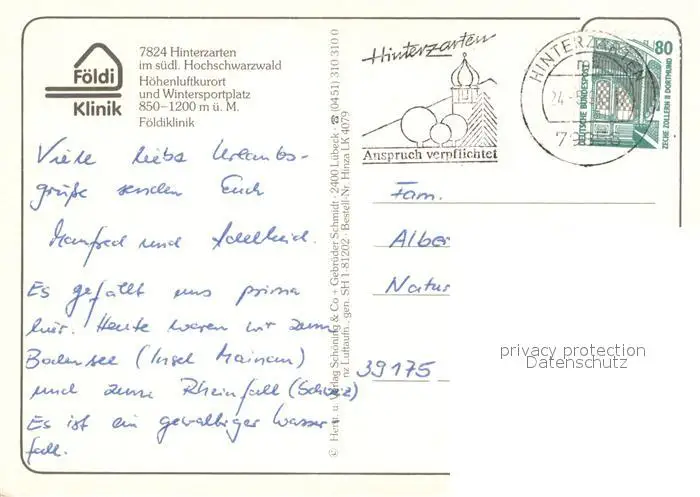 Földi
Klinik
7824 Hinterzarten
im südl. Hochschwarzwald
Höhenluftkurort
und Wintersportplatz
850–1200 m ü. M.
Földiklinik
Viele liebe Urlaubs-
grüße senden Euch
Manfred und Adelheid.
Es gefällt uns prima
hier. Heute waren wir zum
Bodensee (Insel Mainau)
und zum Rheinfall (Schweiz)
Es ist ein gewaltiger Wasser-
fall.
© Hers. u. Verlag Schöning & Co + Gebrüder Schmidt · 2400 Lübeck · ☎ (0451) 310 310 0
nz Luftaufn., gen. SH 1-81202 · Bestell-Nr. Hinza LK 4079
Hinterzarten
Anspruch verpflichtet
HINTERZARTEN
24.-
80
DEUTSCHE BUNDESPOST
ZECHE ZOLLERN II DORTMUND
Fam.
Alber
Natur
39175
privacy protection
Datenschutz